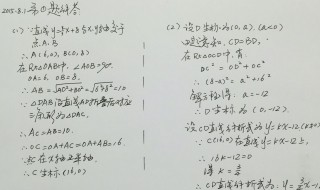 2015.8.1 第①题解答
(1) ∵直线y=4/3x+8与x轴、y轴交于
点A、B
∴A(-6,0), B(0,8)
在Rt△OAB中, ∠AOB=90°.
OA=6, OB=8.
∴AB=√(AO²+BO²)=√(6²+8²)=10
∵△DAB沿直线AD折叠后的对应
三角形为△DAC.
∴AC=AB=10.
∴OC=OA+AC=OA+AB=16.
∵点C在x轴正半轴,
∴C坐标(16,0)
(2) 设D坐标为(0,a), (a<0)
由题意知, CD=BD.
在Rt△OCD中, 有
DC²=OD²+OC²
∴(8-a)²=a²+16²
解方程得, a=-12
∴D坐标(0,-12).
设CD直线解析式为y=kx-12(k≠0)
∵C(16,0)在直线y=kx-12上,
∴16k-12=0
得k=3/4
∴CD直线解析式为: y=3/4x-12